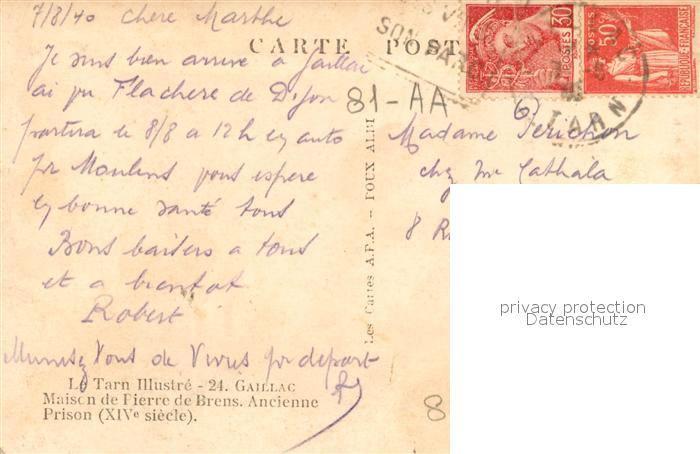 7/8/40 Chere Marthe
Je suis bien arrivé a Gaillac
ai pu Flachere de Dijon
partira le 8/8 a 12h en auto
pr Moulins vous espere
en bonne santé tous
Bons baisers a tous
et a bientot
Robert
Munissez vous de Vivres pr depart
Le Tarn Illustré - 24. GAILLAC
Maison de Pierre de Brens. Ancienne
Prison (XIVe siècle).
CARTE POST
81-AA
Les Cartes A.P.A. - POUX ALBI
30c
POSTES
50c
REPUBLIQUE FRANÇAISE
SON PAR
TARN
Madame Perichon
chez Mr Cathala
8 R
8
privacy protection
Datenschutz